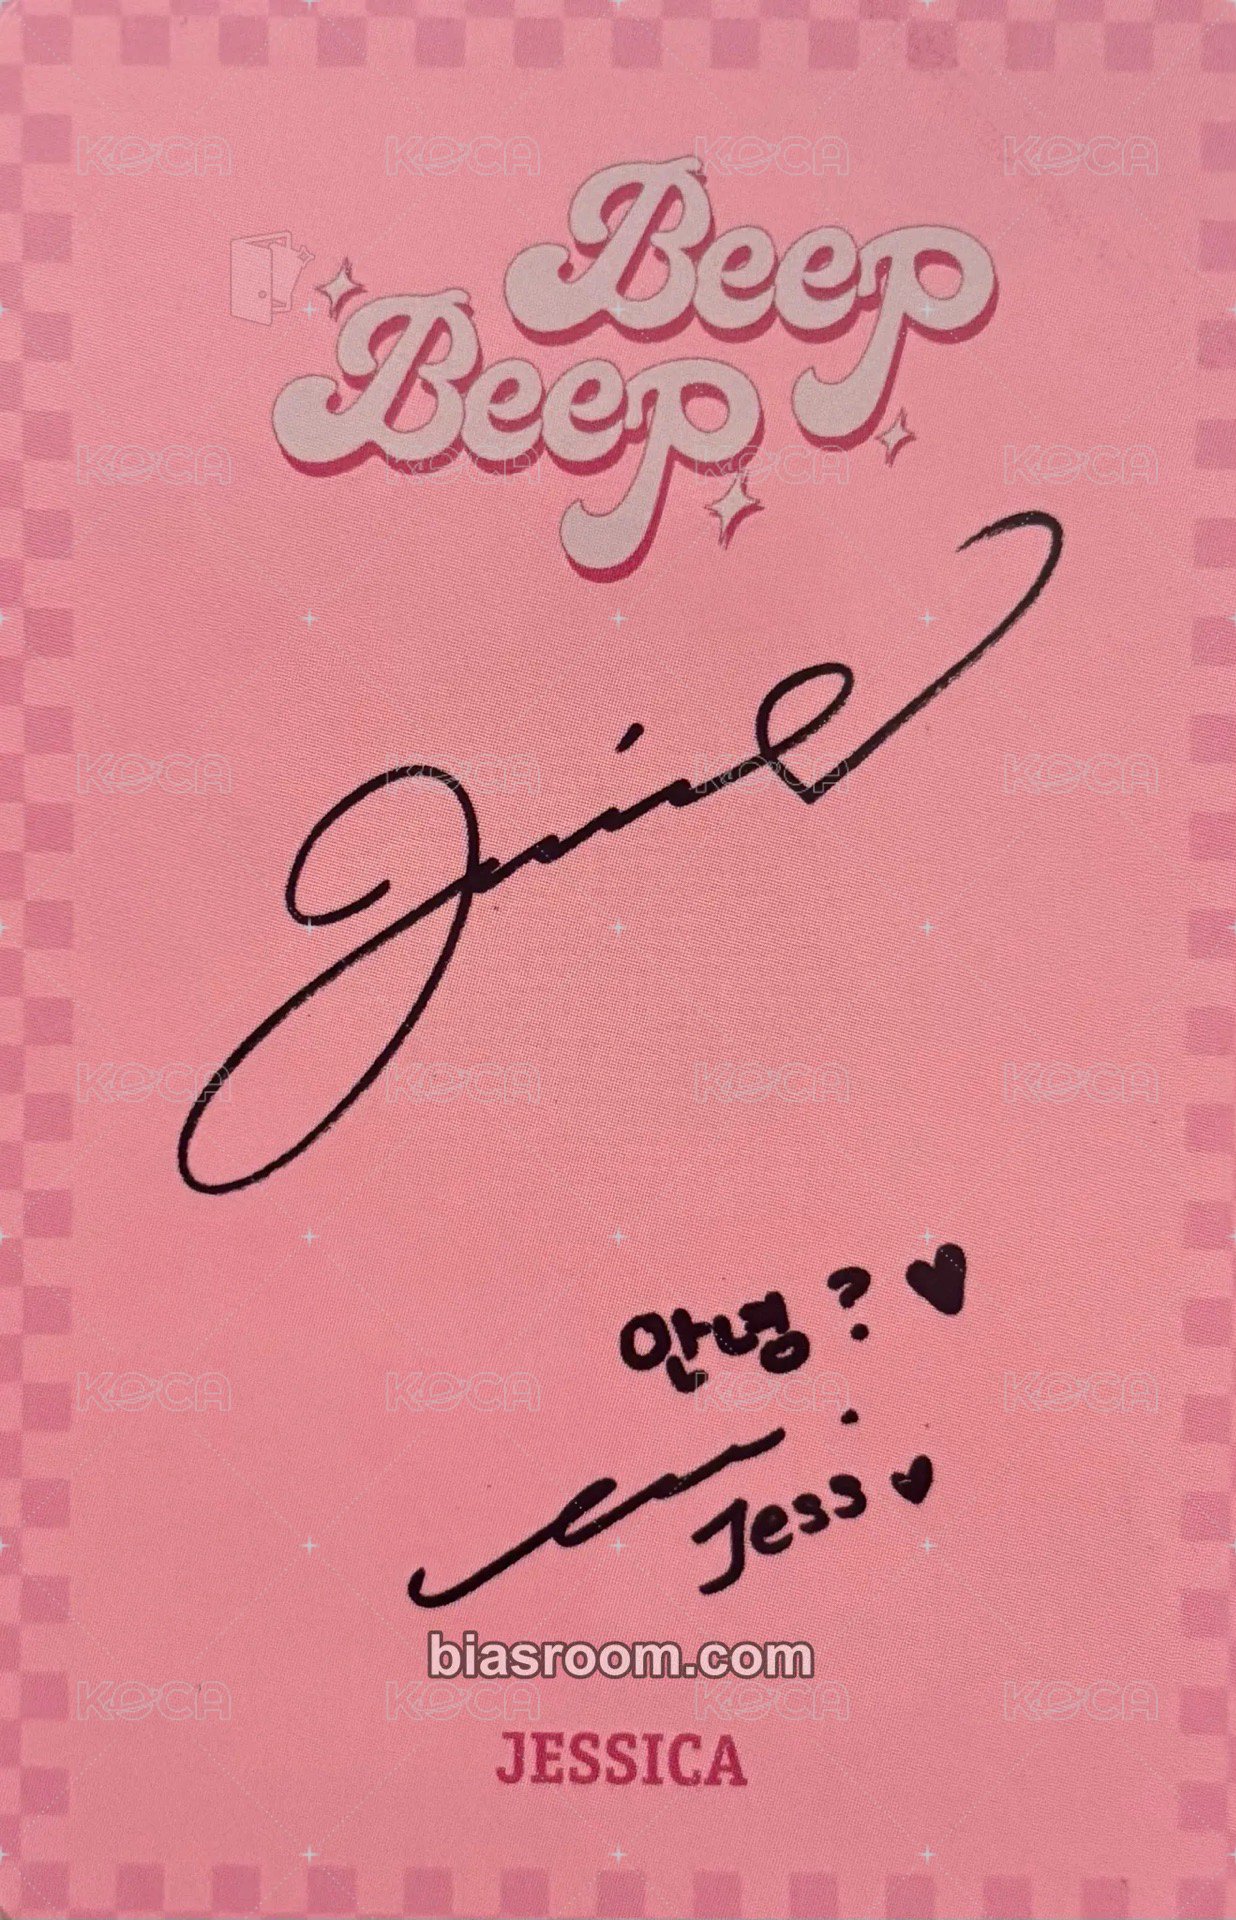 Beep
Beep
Jessica
안녕? ♥
Jess ♥
biasroom.com
JESSICA
KOCA KOCA KOCA KOCA
KOCA KOCA KOCA KOCA
KOCA KOCA KOCA KOCA
KOCA KOCA KOCA KOCA
KOCA KOCA KOCA KOCA
KOCA KOCA KOCA KOCA